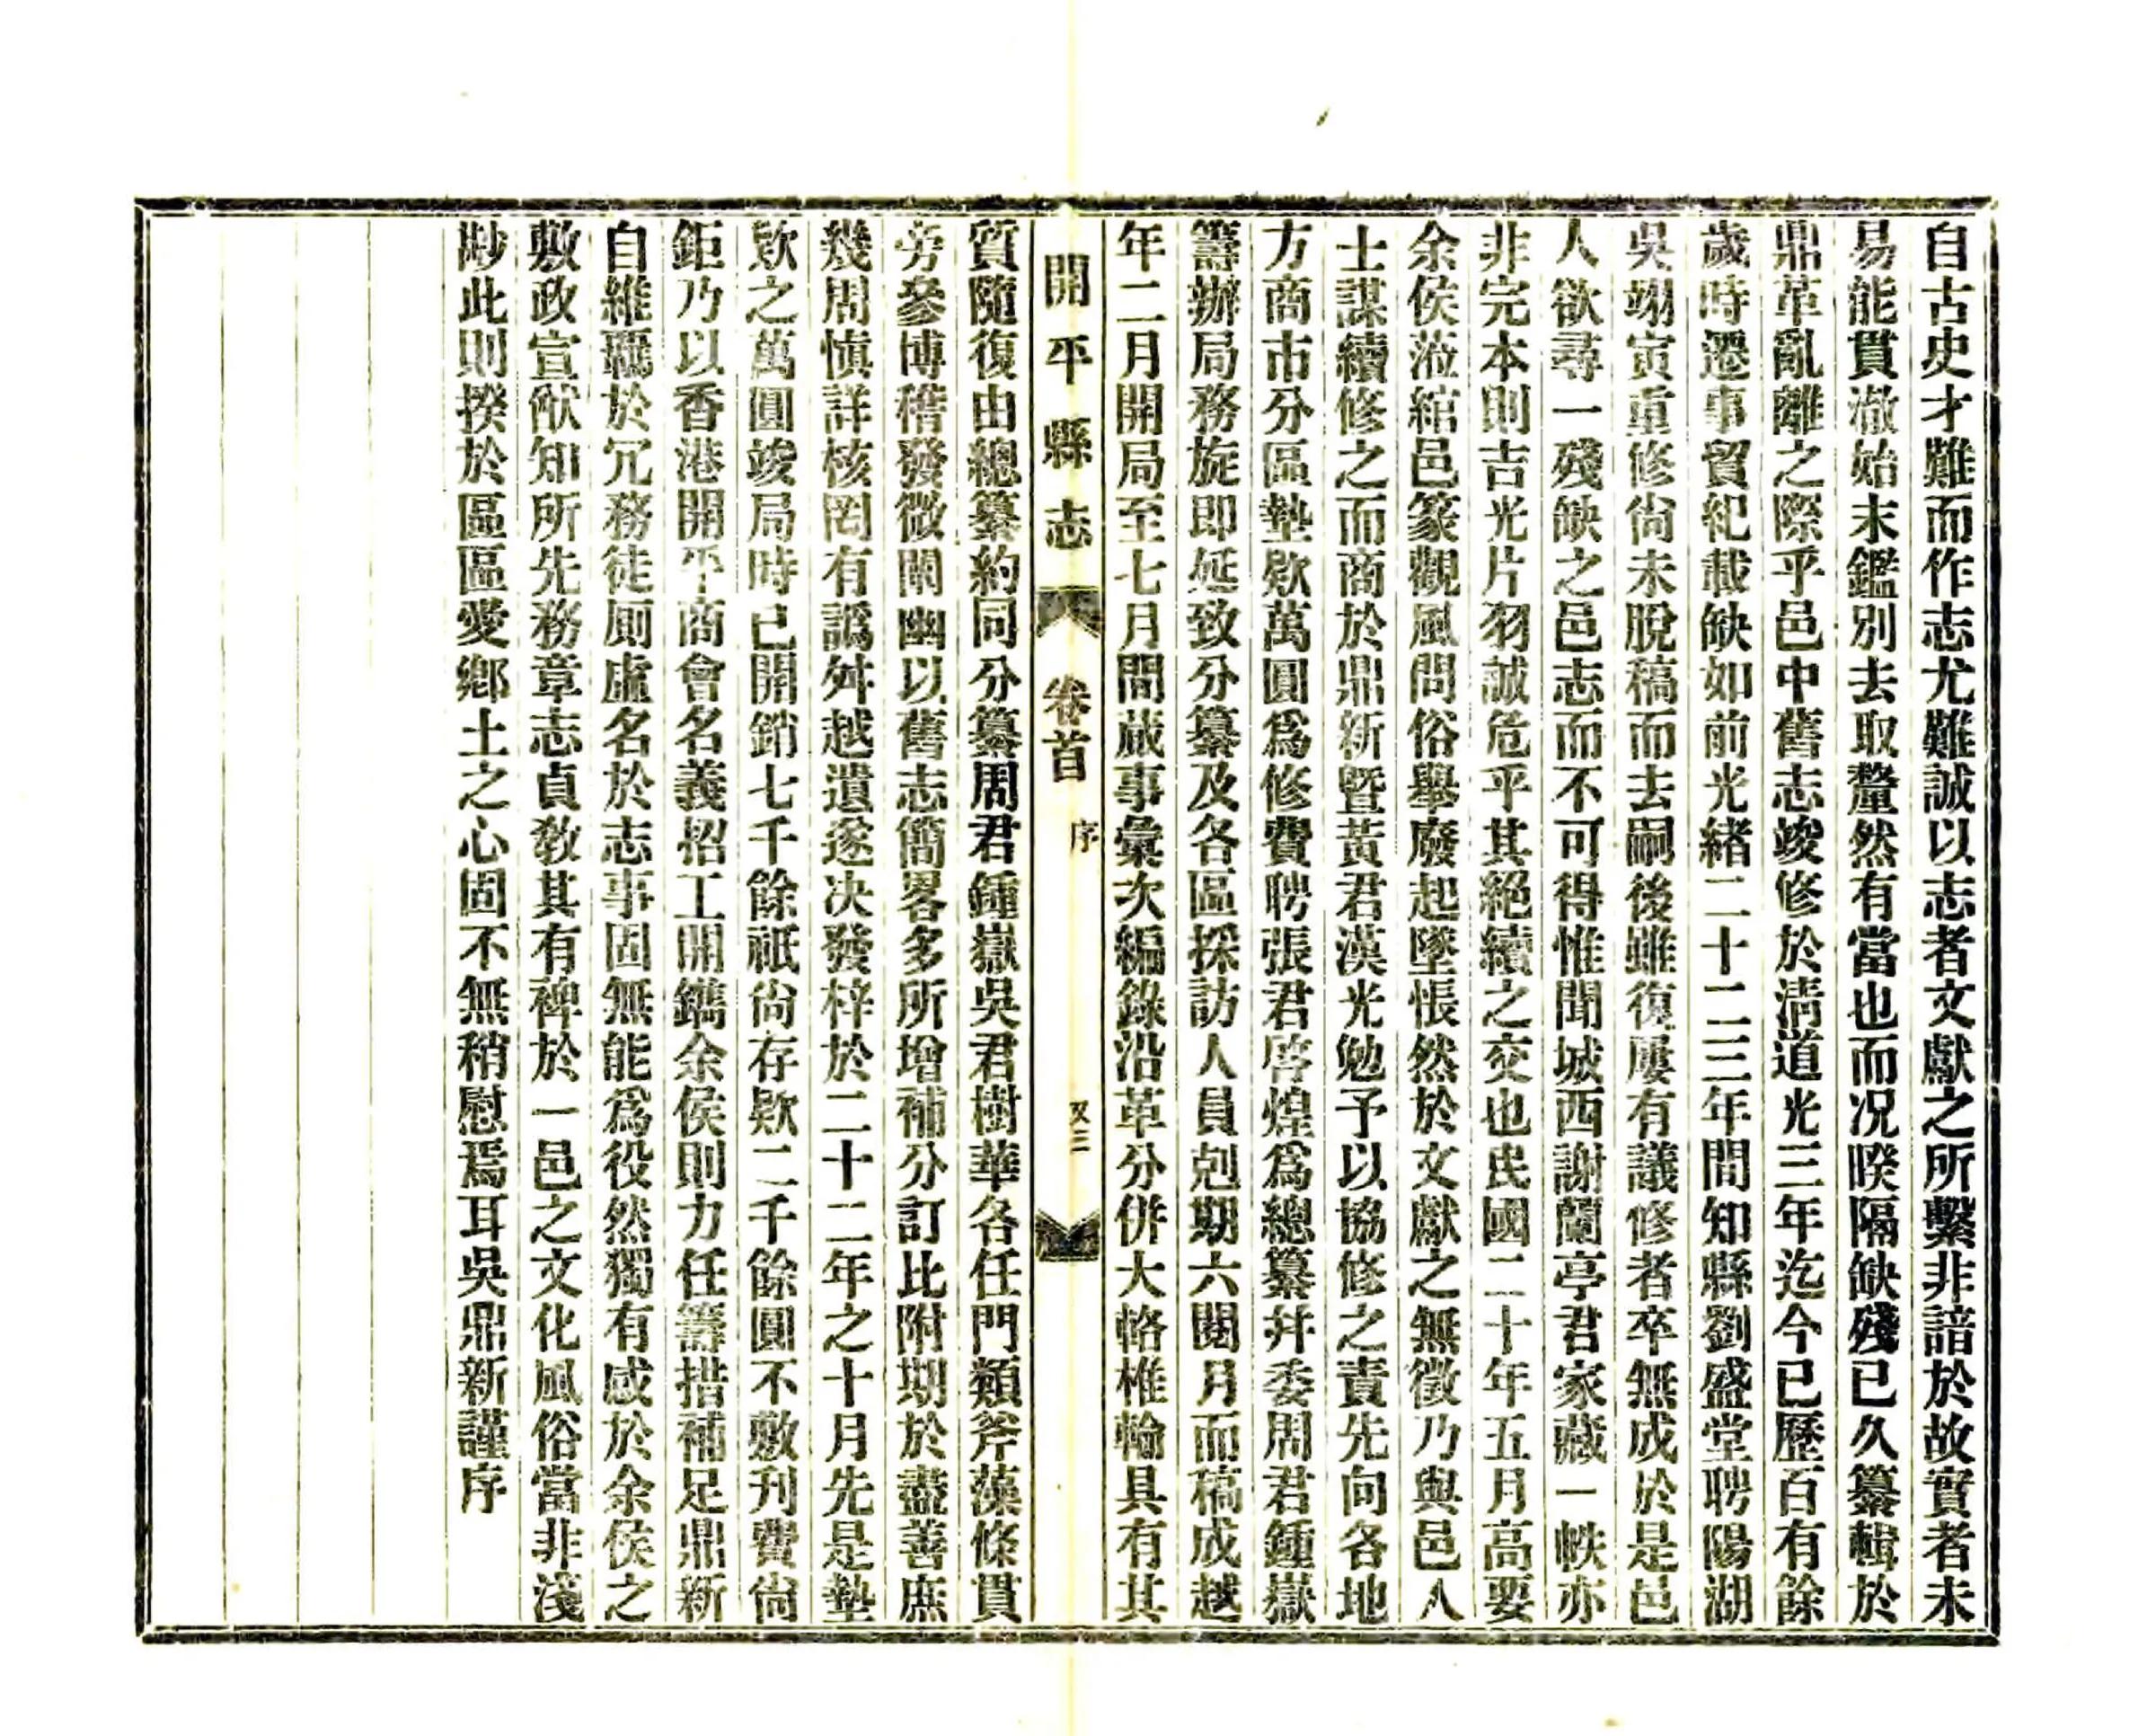 自古史才難而作志尤難誠以志者文獻之所繫非諳於故實者未
易能貫澈始末鑑別去取釐然有當也而况暌隔缺殘已久纂輯於
鼎革亂離之際乎邑中舊志竣修於淸道光三年迄今已歷百有餘
歲時遷事貿紀載缺如前光緒二十二三年間知縣劉盛堂聘陽湖
吳翊寅重修尙未脫稿而去嗣後雖復屢有議修者卒無成於是邑
人欲尋一殘缺之邑志而不可得惟聞城西謝蘭亭君家藏一帙亦
非完本則吉光片羽誠危乎其絕續之交也民國二十年五月高要
余侯涖綰邑篆觀風問俗舉廢起墜悵然於文獻之無徵乃與邑人
士謀續修之而商於鼎新暨黃君漢光勉予以協修之責先向各地
方商市分區墊欵萬圓爲修費聘張君啓煌爲總纂并委周君鍾嶽
籌辦局務旋即延致分纂及各區採訪人員剋期六閱月而稿成越
年二月開局至七月間蕆事彙次編錄沿革分併大輅椎輪具有其
開平縣志 卷首 序 又三
質隨復由總纂約同分纂周君鍾嶽吳君樹華各任門類斧藻條貫
旁參博稽發微闡幽以舊志簡畧多所增補分訂比附期於盡善庶
幾周愼詳核罔有譌舛越遺遂决發梓於二十二年之十月先是墊
欵之萬圓竣局時已開銷七千餘祇尙存欵二千餘圓不敷刊費尙
鉅乃以香港開平商會名義招工開鐫余侯則力任籌措補足鼎新
自維羈於冗務徒厠虛名於志事固無能爲役然獨有感於余侯之
敷政宣猷知所先務章志貞敎其有裨於一邑之文化風俗當非淺
尠此則揆於區區愛鄕土之心固不無稍慰焉耳吳鼎新謹序